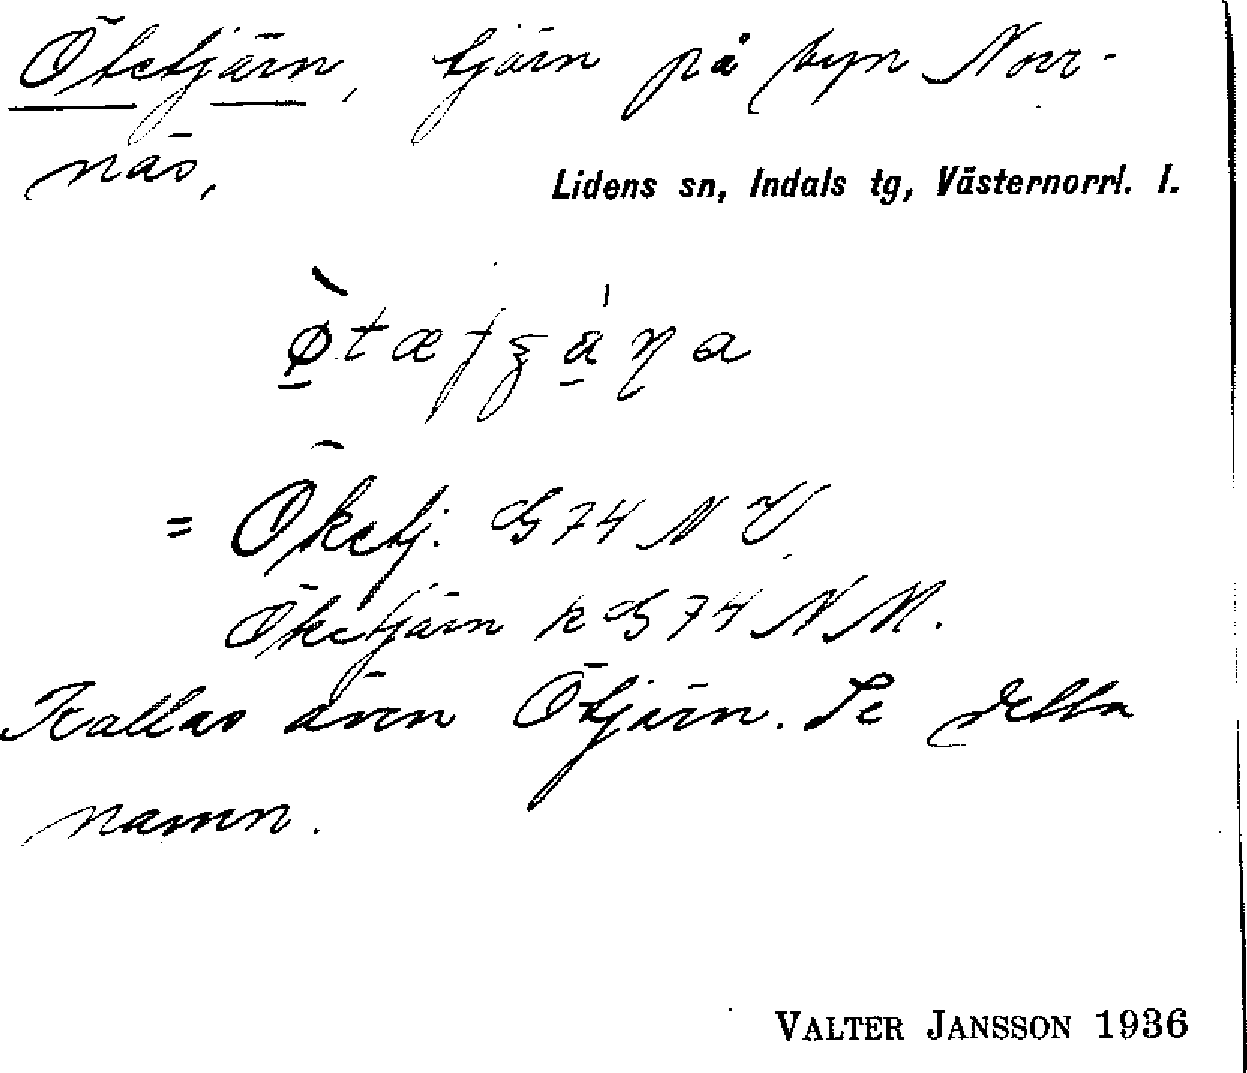 Öketjärn, tjärn på byn Norr-
näs,
Lidens sn, Indals tg, Västernorrl. l.
= Öketj. G 74 N V
Öketjärn k G 74 N M.
Kallas även Ötjärn. Se detta
namn.
VALTER JANSSON 1936